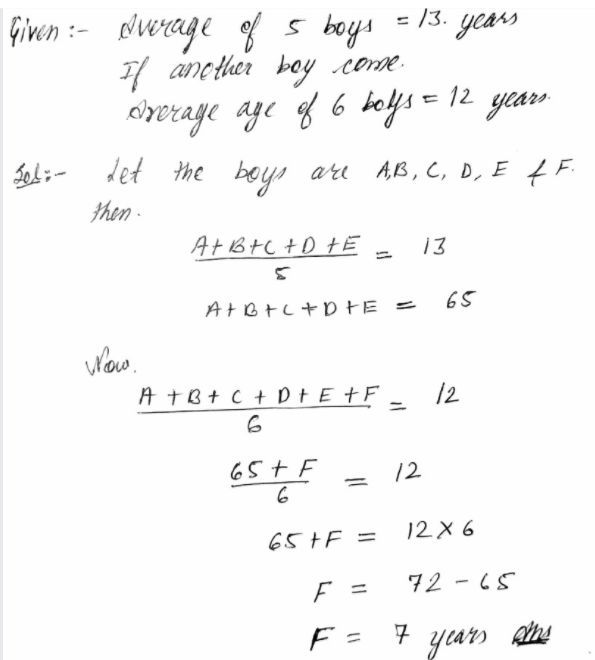 Given :- Average of 5 boys = 13. years
If another boy come.
Average age of 6 boys = 12 years.
Sol:- Let the boys are A,B, C, D, E & F.
then.
A+B+C+D+E = 13
5
A+B+C+D+E = 65
Now.
A+B+C+D+E+F = 12
6
65+F = 12
6
65+F = 12×6
F = 72-65
F = 7 years Ans